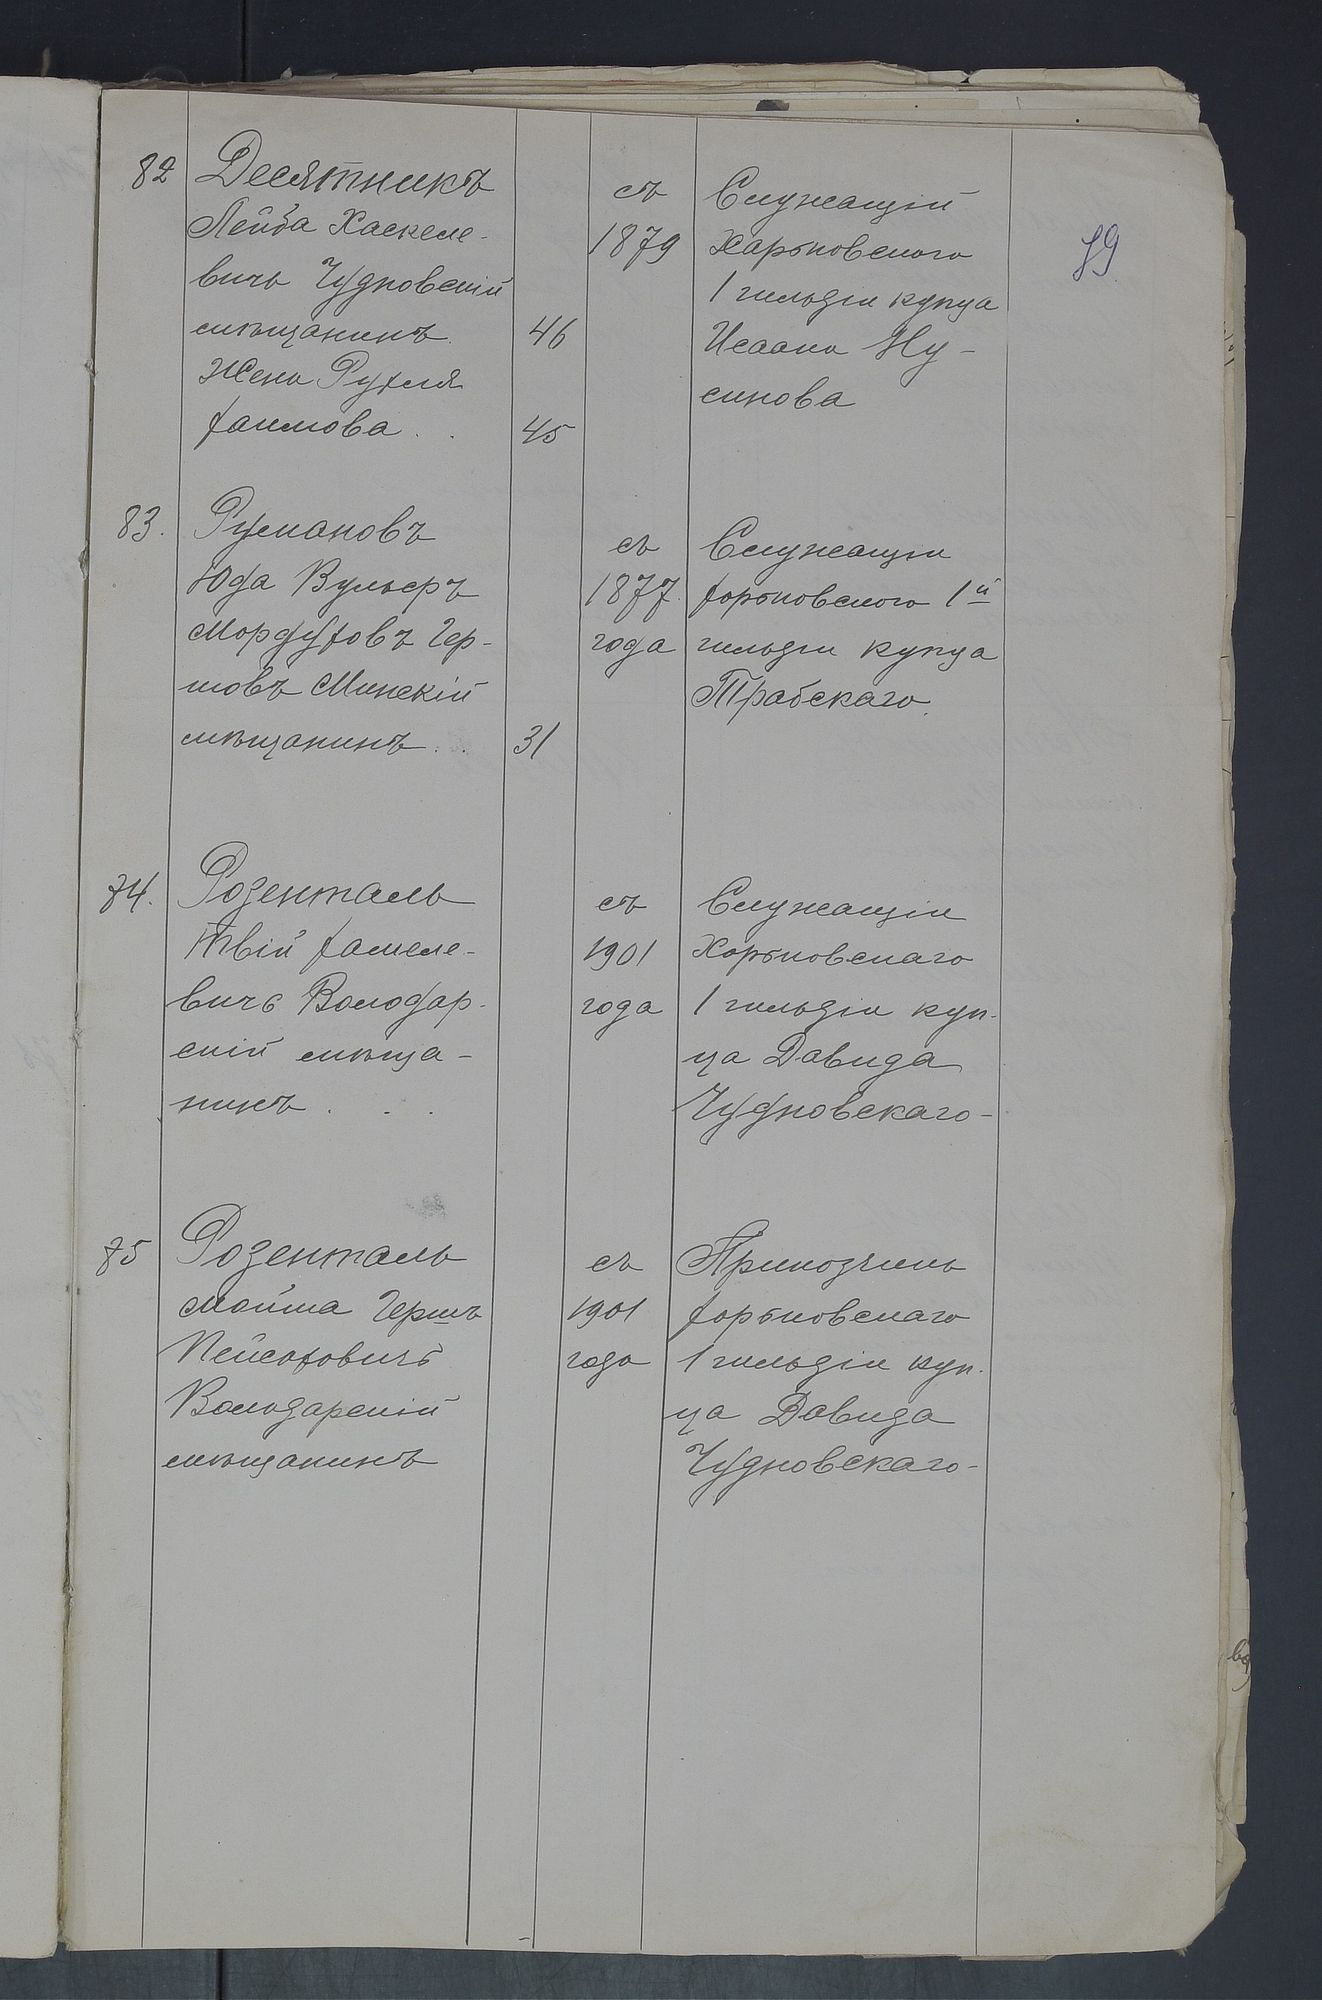 82 Десятникъ
Лейба Хаскеле-
вичъ Чудновскій
мѣщанинъ. 46
Жена Рухля
Хаимова . . 45
съ
1879
Служащій
Харьковскаго
1 гильдіи купца
Исаака Ну-
синова
79
83. Румановъ
Юда Вульфъ
Мордуховъ Гер-
шовъ Минскій
мѣщанинъ . . 31
съ
1877
года
Служащій
Харьковскаго 1й
гильдіи купца
Трабскаго.
84. Розенталь
Хамеле-
вичъ Володар-
скій мѣща-
нинъ . . .
съ
1901
года
Служащій
Харьковскаго
1 гильдіи куп-
ца Давида
Чудновскаго-
85 Розенталь
Мойша Гершъ
Пейсаховичъ
Володарскій
мѣщанинъ
съ
1901
года
Прикащикъ
Харьковскаго
1 гильдіи куп-
ца Давида
Чудновскаго-